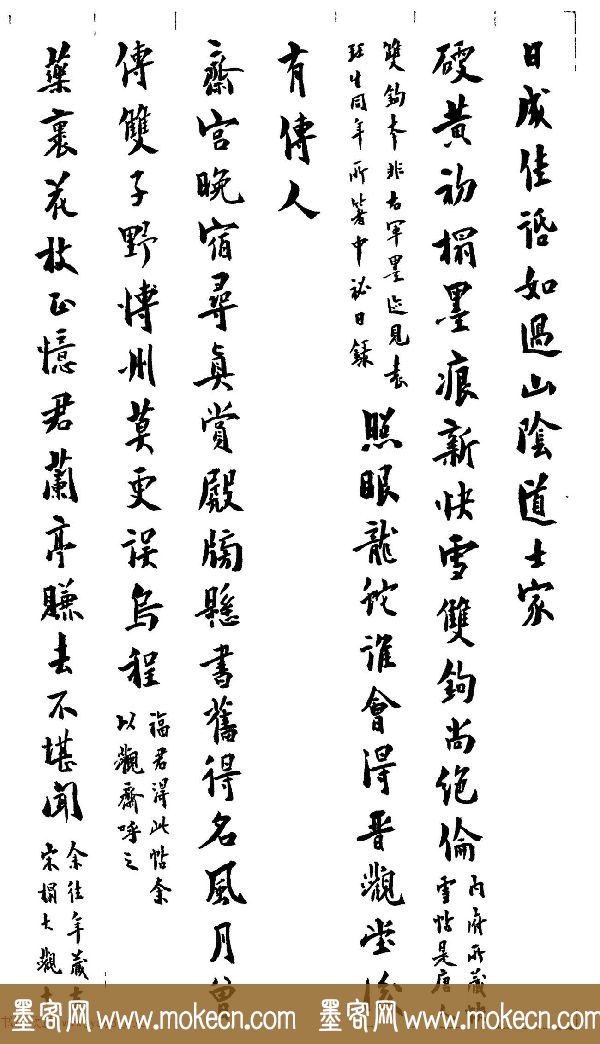 日成佳話如過山陰道士家
硬黃初搨墨痕新快雪雙鉤尚絕倫
內府所藏快
雪帖是唐人
雙鉤本非右軍墨迹見袁
珏生同年所箸中祕日錄
照眼龍蛇誰會得晉觀堂後
有傳人
齋宮晚宿尋真賞殿牓懸書舊得名風月曾
傳雙子野愽州莫更誤烏程
福君得此帖余
以觀齋呼之
藥裹花枝正憶君蘭亭賺去不堪聞
余往年藏
宋搨大觀
墨客网 www.mokecn.com 墨客网 www.mokecn.com